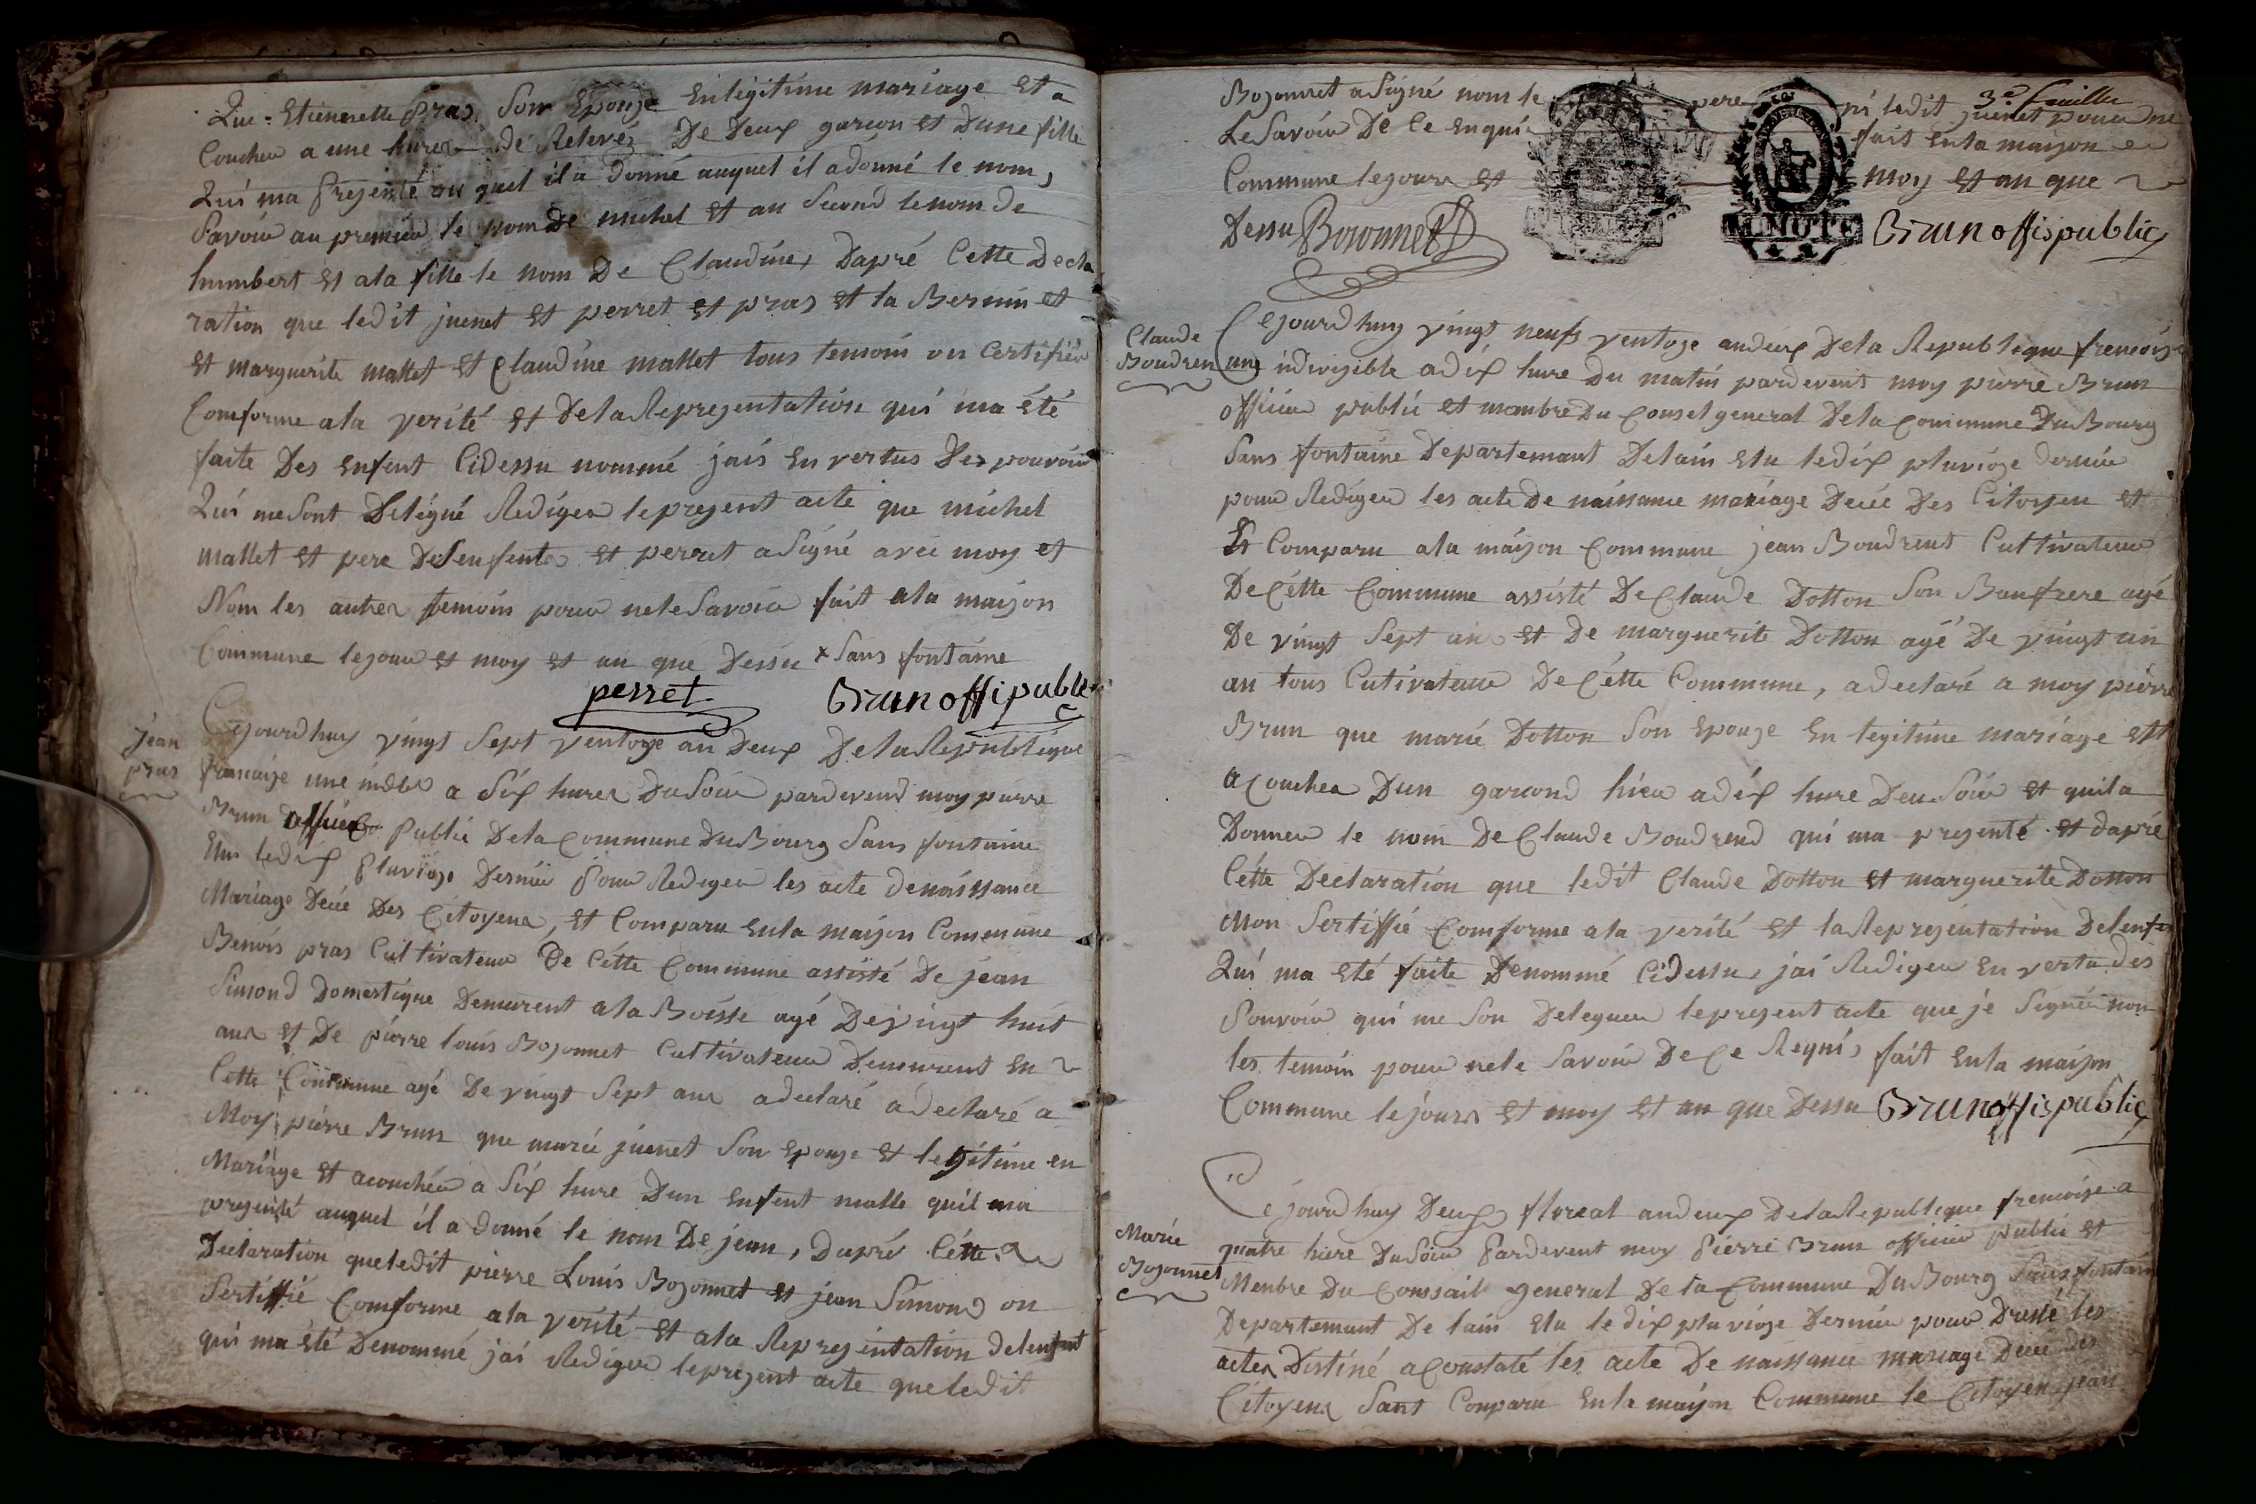 Que Etiennette pras Son Epouze En légitime mariage Et a
Coucher a une hurer de Relevéz De Deux garcon Et Dune fille
Qui ma presenté au quel il a donné auquel il a donné le nom,
Savoir au premier le nom De michel Et au Second le nom de
humbert Et a la fille le nom De Claudine, Dapré Cette Decla
ration que ledit juenet Et perret Et pras Et la Bernin et
Et marguerite mallet Et Claudine mallet tous temoin on Certifier
Comforme a la verité Et De la Representation qui ma Eté
faite Des Enfent Cidessu nommé jais En vertus Des pouvoir
Qui me Sont Deligné Rediger le present acte que michel
mallet Et pere Des enfente Et perret a Signé avec moy et
Nom les autrer temoin pour ne le Savoir fait a la maizon
Commune le jour Et moy Et an que Dessu x Sans fontaine
perret Brun offi public
jean
pras
Cejourdhuy vingt Sept ventoze an Deux De la Republique
francaize une indble a Six hurer Du Soir pardevend moy pierre
Brun officier Public De la Commune Du Bourg Sans fontaine
Elu le dix Pluvioze Dernier Pour Rediger les acte de naissance
Mariage Décé Des Citoyens, Et Comparu En la maizon Commune
Benois pras Cultivateur De Cette Commune assisté De jean
Simond Domestique Demeurent a la Boisse agé De vingt huit
ans Et De pierre louis Bozonnet Cultivateur Demeurent En
Cette Commune agé De vingt Sept ans a declaré a declaré a
Moy pierre Brun que marie juenet Son Epouze Et legitime en
Mariage Et acouchée a Six hure Dun Enfent malle quil ma
presenté auquel il a donné le nom De jean, dapré Cette
Declaration que ledit pierre Louis Bozonnet Et jean Simond on
Sertiffié Comforme a la verité Et a la Represéntation de lenfent
qui ma Eté Denommé jai Rediger le present acte que ledit
3e feuille
Bozonnet a Signé nom le pere ni ledit juenet pour ne
Le Savoir De Ce Enqui fait En la maizon
Commune le jour Et moy Et an que
Dessu Bozonnet Brun offis public
MINUTE
Claude
Boudren
Cejourdhuy vingt neuf ventoze an deux De la Republique frencoize
une indivizible a dix hure Du matin pardevent moy pierre Brun
officier public Et menbre Du Consel general De la Commune Du Bourg
Sans fontaine Departemant De lain Elu le dix pluvioze dernier
pour Rediger les acte De naissance mariage Décé Des Citoyen Et
Et Comparu a la maizon Commune jean Boudrent Cultivateur
De Cétte Commune assisté De Claude Dotton Son Baufrere agé
De vingt Sept ans Et De marguerite Dotton agé De vingt un
an tous Cutivateur De Cétte Commune, a declaré a moy pierre
Brun que marie Dotton Son Epouze En legitime mariage Ett
a Coucher Dun garcond hier a dix hure Deu Soir Et quil a
Donner le nom De Claude Boudrend qui ma presenté Et dapré
Cétte Declaration que ledit Claude Dotton Et marguerite Dotton
Mon Sertiffié Comforme a la verité Et la Represéntation De lenfen
Qui ma Eté faite Denommé Cidessu, jai Rediger En vertu des
Pouvoir qui me Son Deleguer le present acte que je Signér non
les temoin pour ne le Savoir De Ce Requis fait En la maizon
Commune le jours Et moy Et an que Dessu Brun offis public
Marie
Bozonnet
Cejourdhuy Deux floreal an deux De la Republique frencoize a
quatre hure Du Soir Pardevent moy Pierre Brun officier public Et
Menbre Du Conssail general De la Commune Du Bourg Sans fontain
Departemant De lain Elu le dix pluvioze Dernier pour Dressé les
acter Distiné a Constaté les acte De naissance mariage Décé des
Citoyens Sant Conparu En la maizon Commune le Citoyen jean